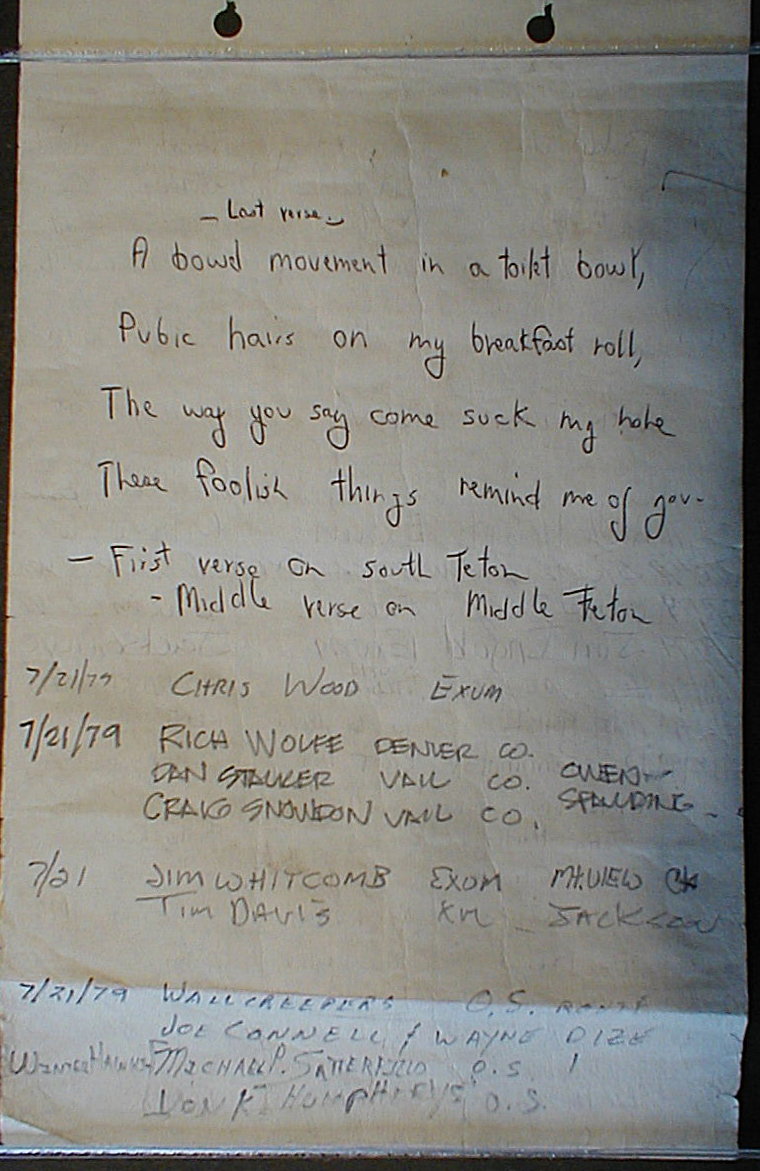 — Last verse —
A bowel movement in a toilet bowl,
Pubic hairs on my breakfast roll,
The way you say come suck my hole
These foolish things remind me of you.
— First verse on South Teton
- Middle verse on Middle Teton
7/21/79 CHRIS WOOD EXUM
7/21/79 RICH WOLFE DENVER CO.
DAN STALKER VAIL CO. OWEN-
CRAIG SNOWDON VAIL CO. SPAULDING
7/21 JIM WHITCOMB EXUM MT.VIEW CA
TIM DAVIS JACKSON
7/21/79 WALLCREEPERS O.S. ROUTE
JOE CONNELL & WAYNE DIZE
MICHAEL P. SATTERFIELD O.S
HUMPHREYS O.S.